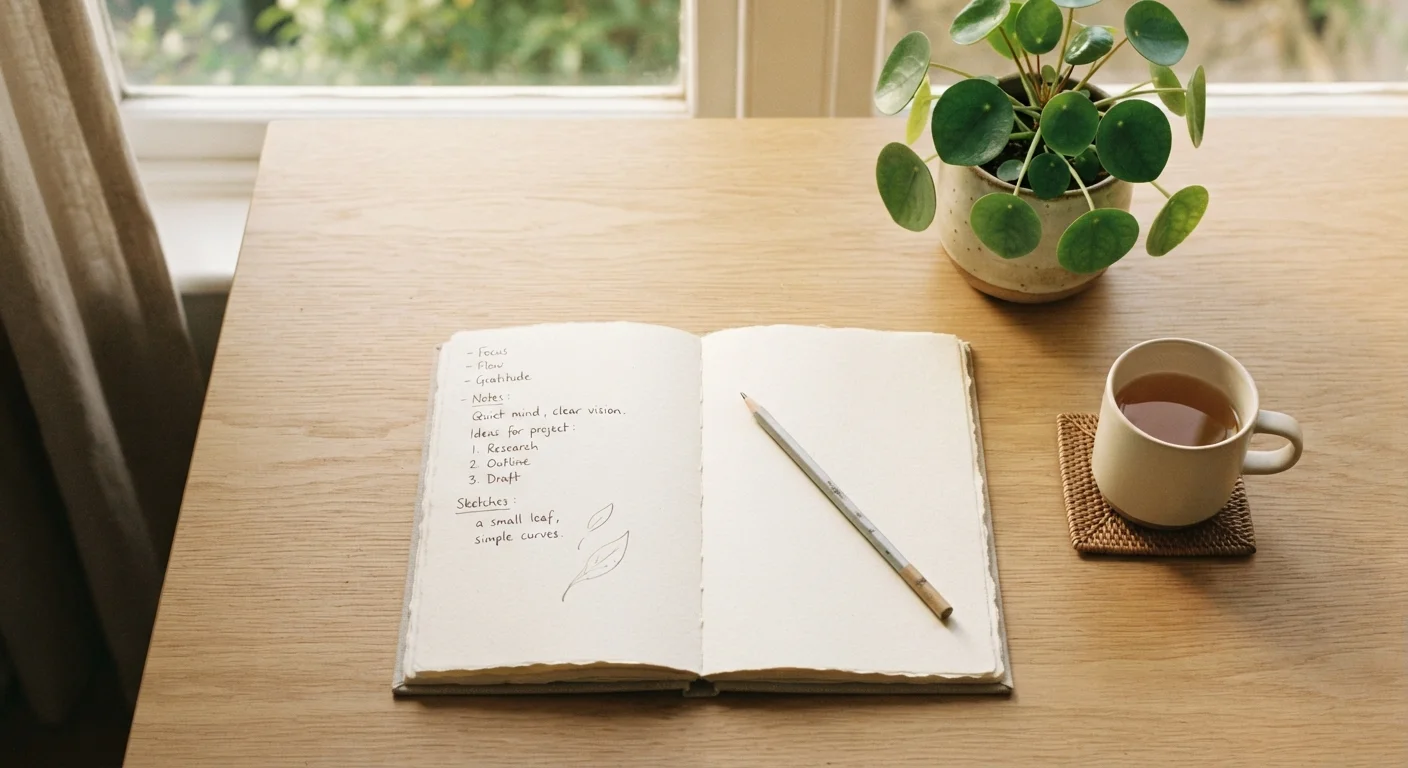 - Focus
- Flow
- Gratitude
- Notes:
Quiet mind, clear vision.
Ideas for project:
1. Research
2. Outline
3. Draft
Sketches:
a small leaf,
simple curves.